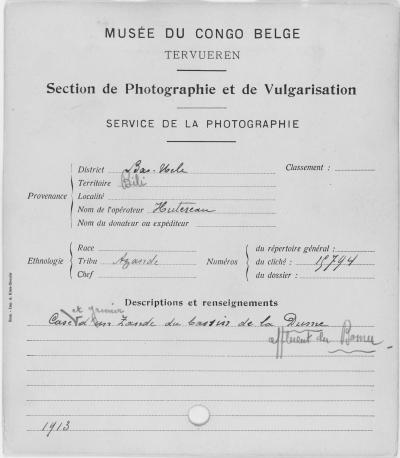 MUSÉE DU CONGO BELGE
TERVUEREN
Section de Photographie et de Vulgarisation
SERVICE DE LA PHOTOGRAPHIE
Provenance
District Bas-Uele
Territoire Bili
Localité
Nom de l'opérateur Hutereau
Nom du donateur ou expéditeur
Classement :
Ethnologie
Race
Tribu Azande
Chef
Numéros
du répertoire général :
du cliché : 15794
du dossier :
Descriptions et renseignements
et grenier
Case d'un Zande du bassin de la Dume
affluent du Bomu
1913